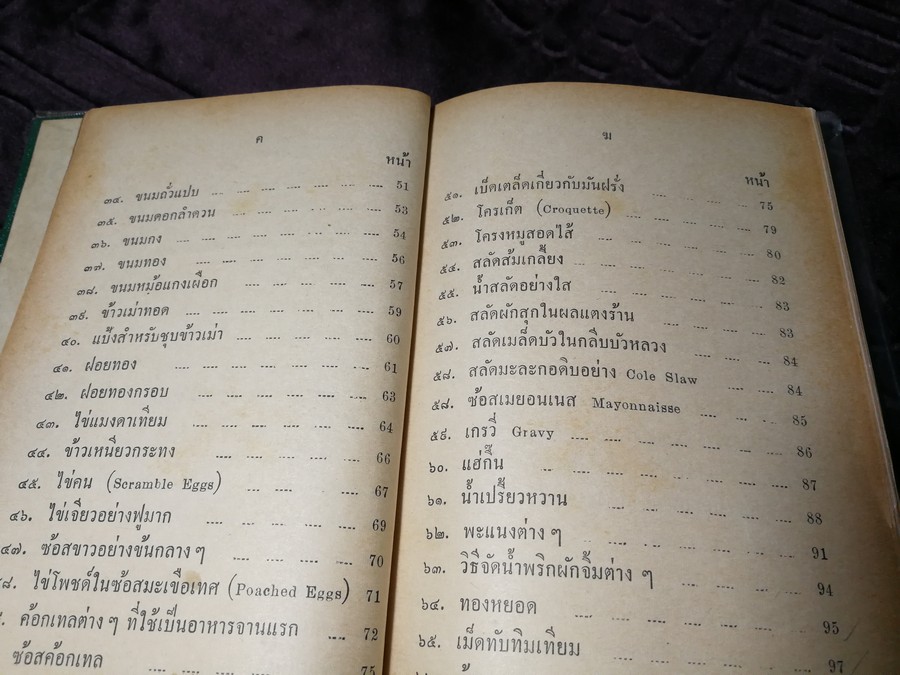 ค
หน้า
๓๔. ขนมถั่วแปบ .... .... .... .... .... .... 51
๓๕. ขนมดอกลำดวน .... .... .... .... .... 53
๓๖. ขนมกง .... .... .... .... .... .... 54
๓๗. ขนมทอง .... .... .... .... .... .... 56
๓๘. ขนมหม้อแกงเผือก .... .... .... .... 57
๓๙. ข้าวเม่าทอด .... .... .... .... .... 59
๔๐. แป้งสำหรับชุบข้าวเม่า .... .... .... 60
๔๑. ฝอยทอง .... .... .... .... .... 61
๔๒. ฝอยทองกรอบ .... .... .... .... 63
๔๓. ไข่แมงดาเทียม .... .... .... .... 64
๔๔. ข้าวเหนียวกระทง .... .... .... .... 66
๔๕. ไข่คน (Scramble Eggs) .... .... .... 67
๔๖. ไข่เจียวอย่างฟูมาก .... .... .... .... 69
๔๗. ซ้อสขาวอย่างข้นกลาง ๆ .... .... .... 70
๔๘. ไข่โพชด์ในซ้อสมะเขือเทศ (Poached Eggs) 71
ค้อกเทลต่าง ๆ ที่ใช้เป็นอาหารจานแรก .... 72
ซ้อสค้อกเทล .... .... .... .... 75
ฆ
หน้า
๕๑. เบ็ดเตล็ดเกี่ยวกับมันฝรั่ง .... .... .... 75
๕๒. โครเก็ต (Croquette) .... .... .... .... 79
๕๓. โครงหมูสอดไส้ .... .... .... .... 80
๕๔. สลัดส้มเกลี้ยง .... .... .... .... 82
๕๕. น้ำสลัดอย่างใส .... .... .... .... 83
๕๖. สลัดผักสุกในผลแตงร้าน .... .... .... 83
๕๗. สลัดเมล็ดบัวในกลีบบัวหลวง .... .... .... 84
๕๘. สลัดมะละกอดิบอย่าง Cole Slaw .... .... 84
๕๘. ซ้อสเมยอนเนส Mayonnaisse .... .... 85
๕๙. เกรวี่ Gravy .... .... .... .... .... 86
๖๐. แฮ่กึ๊น .... .... .... .... .... 87
๖๑. น้ำเปรี้ยวหวาน .... .... .... .... 88
๖๒. พะแนงต่าง ๆ .... .... .... .... 91
๖๓. วิธีจัดน้ำพริกผักจิ้มต่าง ๆ .... .... .... 94
๖๔. ทองหยอด .... .... .... .... 95
๖๕. เม็ดทับทิมเทียม .... .... .... .... 97